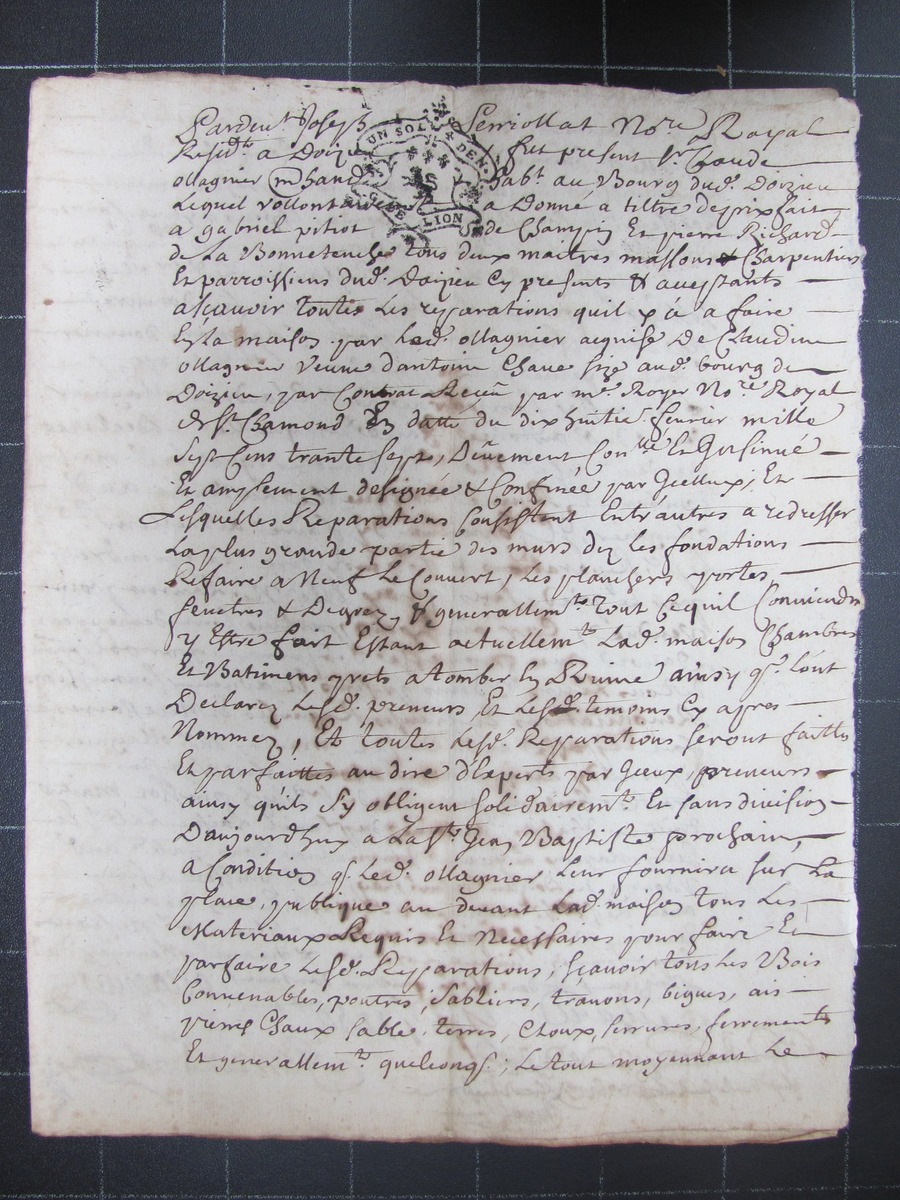 Pardevt Joseph Serriollat Nore Royal
Residt a Doizieu fut present Sr Claude
ollagnier mchand habt au Bourg dud. Doizieu
Lequel vollontairement a Donné a tiltre de prix fait
a gabriel pitiot de Champin Et pierre Richard
de La Bonnetenche tous deux maitres massons & Charpentiers
Et parroissiens dud. Doizieu Cy presents & aceptants
ascavoir toutes Les reparations quil y a a faire
En la maison par Led. ollagnier acquise De Claudine
ollagnier Veuve d'antoine Chave size aud. bourg de
Doizieu, par Contrat Receu par me. Royer Nore Royal
de St. Chamond En datte du dix huitie. fevrier mille
Sept Cens trante sept, Dûement Conllé Et Insinué
Et amplement designée & Confinée par Icelluy, Et
Lesquelles Reparations Consistent Entrautres a redresser
La plus grande partie des murs dez les fondations
Refaire a Neuf Le Couvert, les planchers portes
fenetres & Degrez, & generallemt. tout Ce quil Conviendra
y Estre fait Estant actuellemt. Lad. maison Chambres
Et Batimens prets a tomber En Ruine ainsy q. l'ont
Declarez Lesd. preneurs, Et Lesd. temoins Cy apres
Nommez, Et toutes Lesd. Reparations seront faittes
Et parfaittes au dire d'Experts par Iceux, preneurs
ainsy quils s'y obligent solidairemt. Et sans division
D'aujourdhuy a La St. Jean Baptiste prochain,
a Condition q. Led. ollagnier Leur fournira sur La
place, publique au devant Lad. maison tous Les
Materiaux Requis Et Necessaires pour faire Et
parfaire Lesd. Reparations, sçavoir tous Les Bois
Convenables, poutres, sabliers, travons, bigues, ais
pierre Chaux sable, terres, Cloux, serrures, ferrements
Et generallemt. quelconqs.; Le tout moyennant Le
UN SOL
DEN.
LION